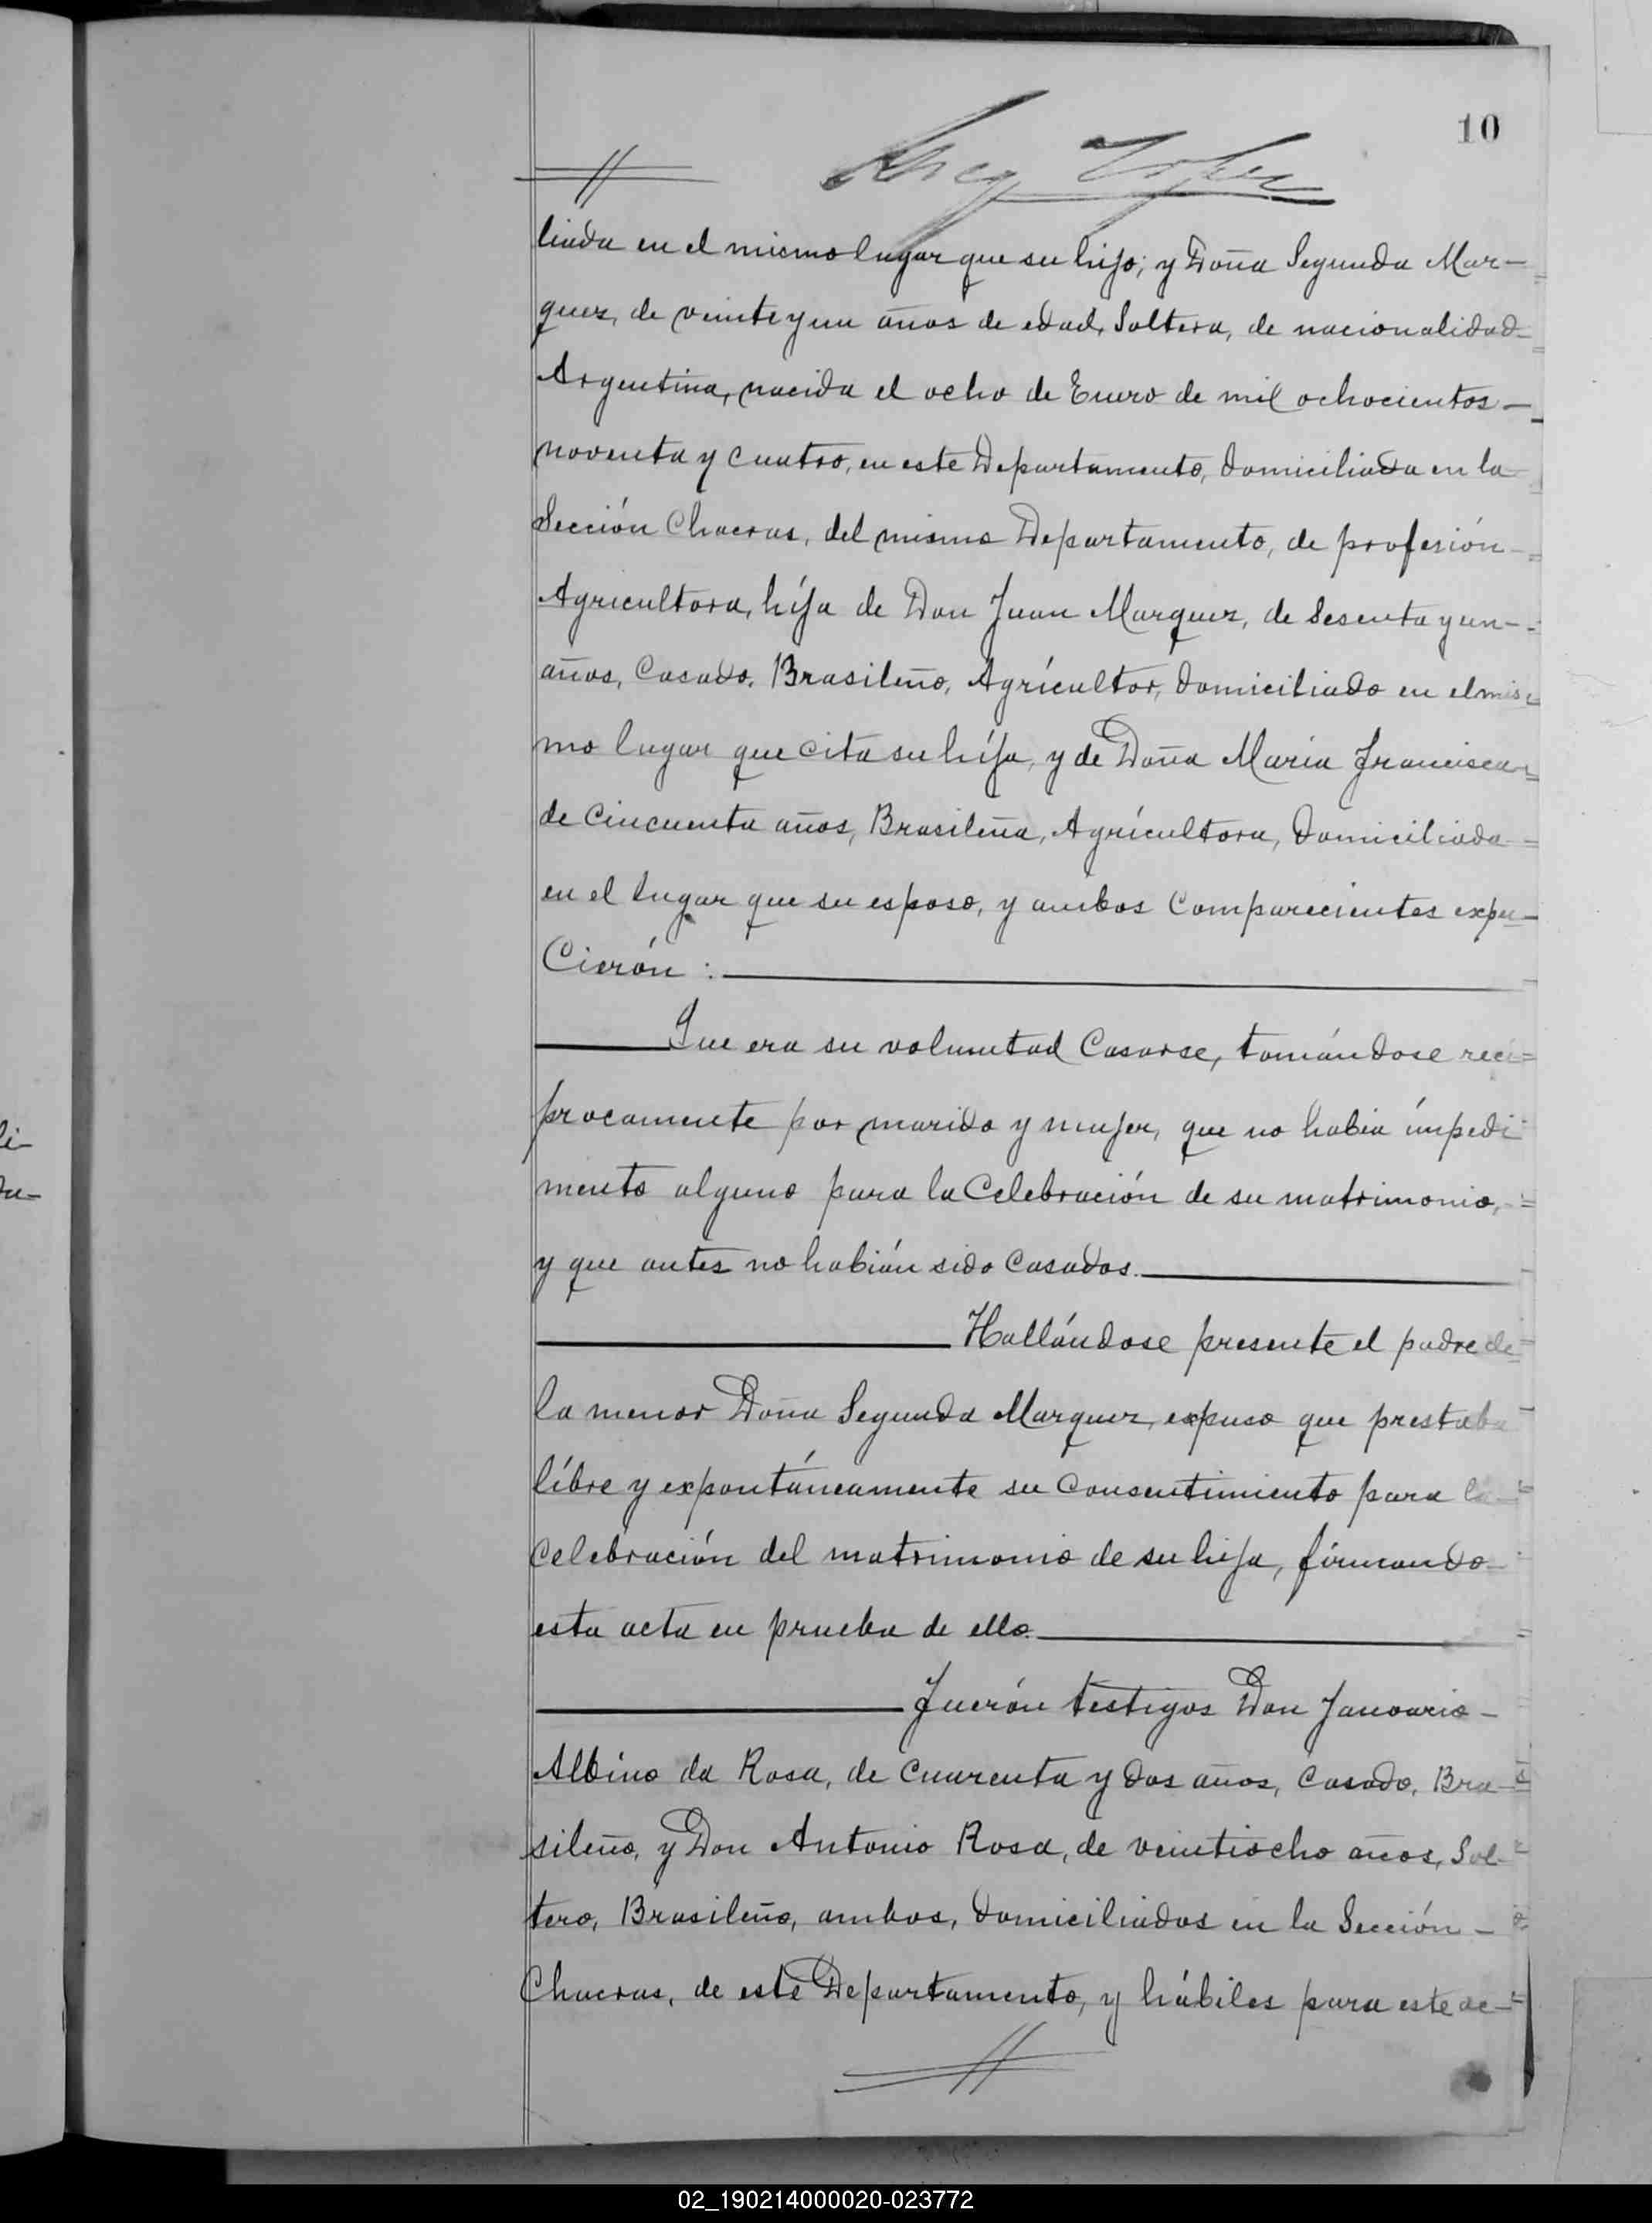 10
liada en el mismo lugar que su hijo; y Doña Segunda Mar-
quez, de veinte y un años de edad, Soltera, de nacionalidad
Argentina, nacida el ocho de Enero de mil ochocientos-
noventa y cuatro, en este Departamento, domiciliada en la
Sección Chacras, del mismo Departamento, de profesión
Agricultora, híja de Don Juan Marquez, de Sesenta y un-
años, Casado, Brasileño, Agrícultor, domiciliado en el mis
mo lugar que cita su híja, y de Doña María Francisca
de Cincuenta años, Brasileña, Agrícultora, domiciliada
en el lugar que su esposo, y ambos Comparecientes expu-
Cierón:
Que era su voluntad Casarse, tomándose reci=
procamente por marido y mujer, que no habia ímpedi
mento alguno para la Celebración de su matrimonio,
y que antes no habián sido Casados.
Hallándose presente el padre de
la menor Doña Segunda Marquez, expuso que prestaba
líbre y expontáneamente su Consentimiento para la
Celebración del matrimonio de su hija, fírmando
esta acta en prueba de ello.
Fuerón testigos Don Januario-
Albino da Rosa, de Cuarenta y dos años, Casado, Bra-
sileño, y Don Antonio Rosa, de veintiocho años, Sol-
tero, Brasileño, ambos, domiciliados en la Sección-
Chacras, de este Departamento, y hábiles para este ac-
02_190214000020-023772